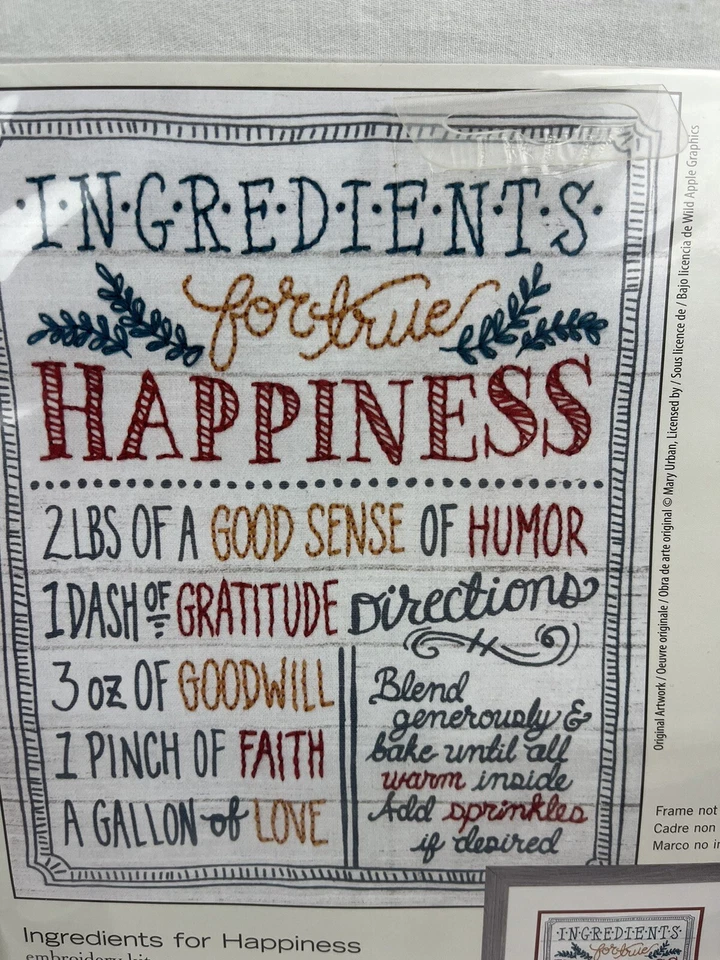 ·I·N·G·R·E·D·I·E·N·T·S·
for true
HAPPINESS
2 LBS OF A GOOD SENSE OF HUMOR
1 DASH OF GRATITUDE
3 oz OF GOODWILL
1 PINCH OF FAITH
A GALLON of LOVE
Directions
Blend
generously &
bake until all
warm inside
Add sprinkles
if desired
Original Artwork / Oeuvre originale / Obra de arte original © Mary Urban, Licensed by / Sous licence de / Bajo licencia de Wild Apple Graphics
Frame not
Cadre non
Marco no in
Ingredients for Happiness
embroidery kit
·I·N·G·R·E·D·I·E·N·T·S·
for true